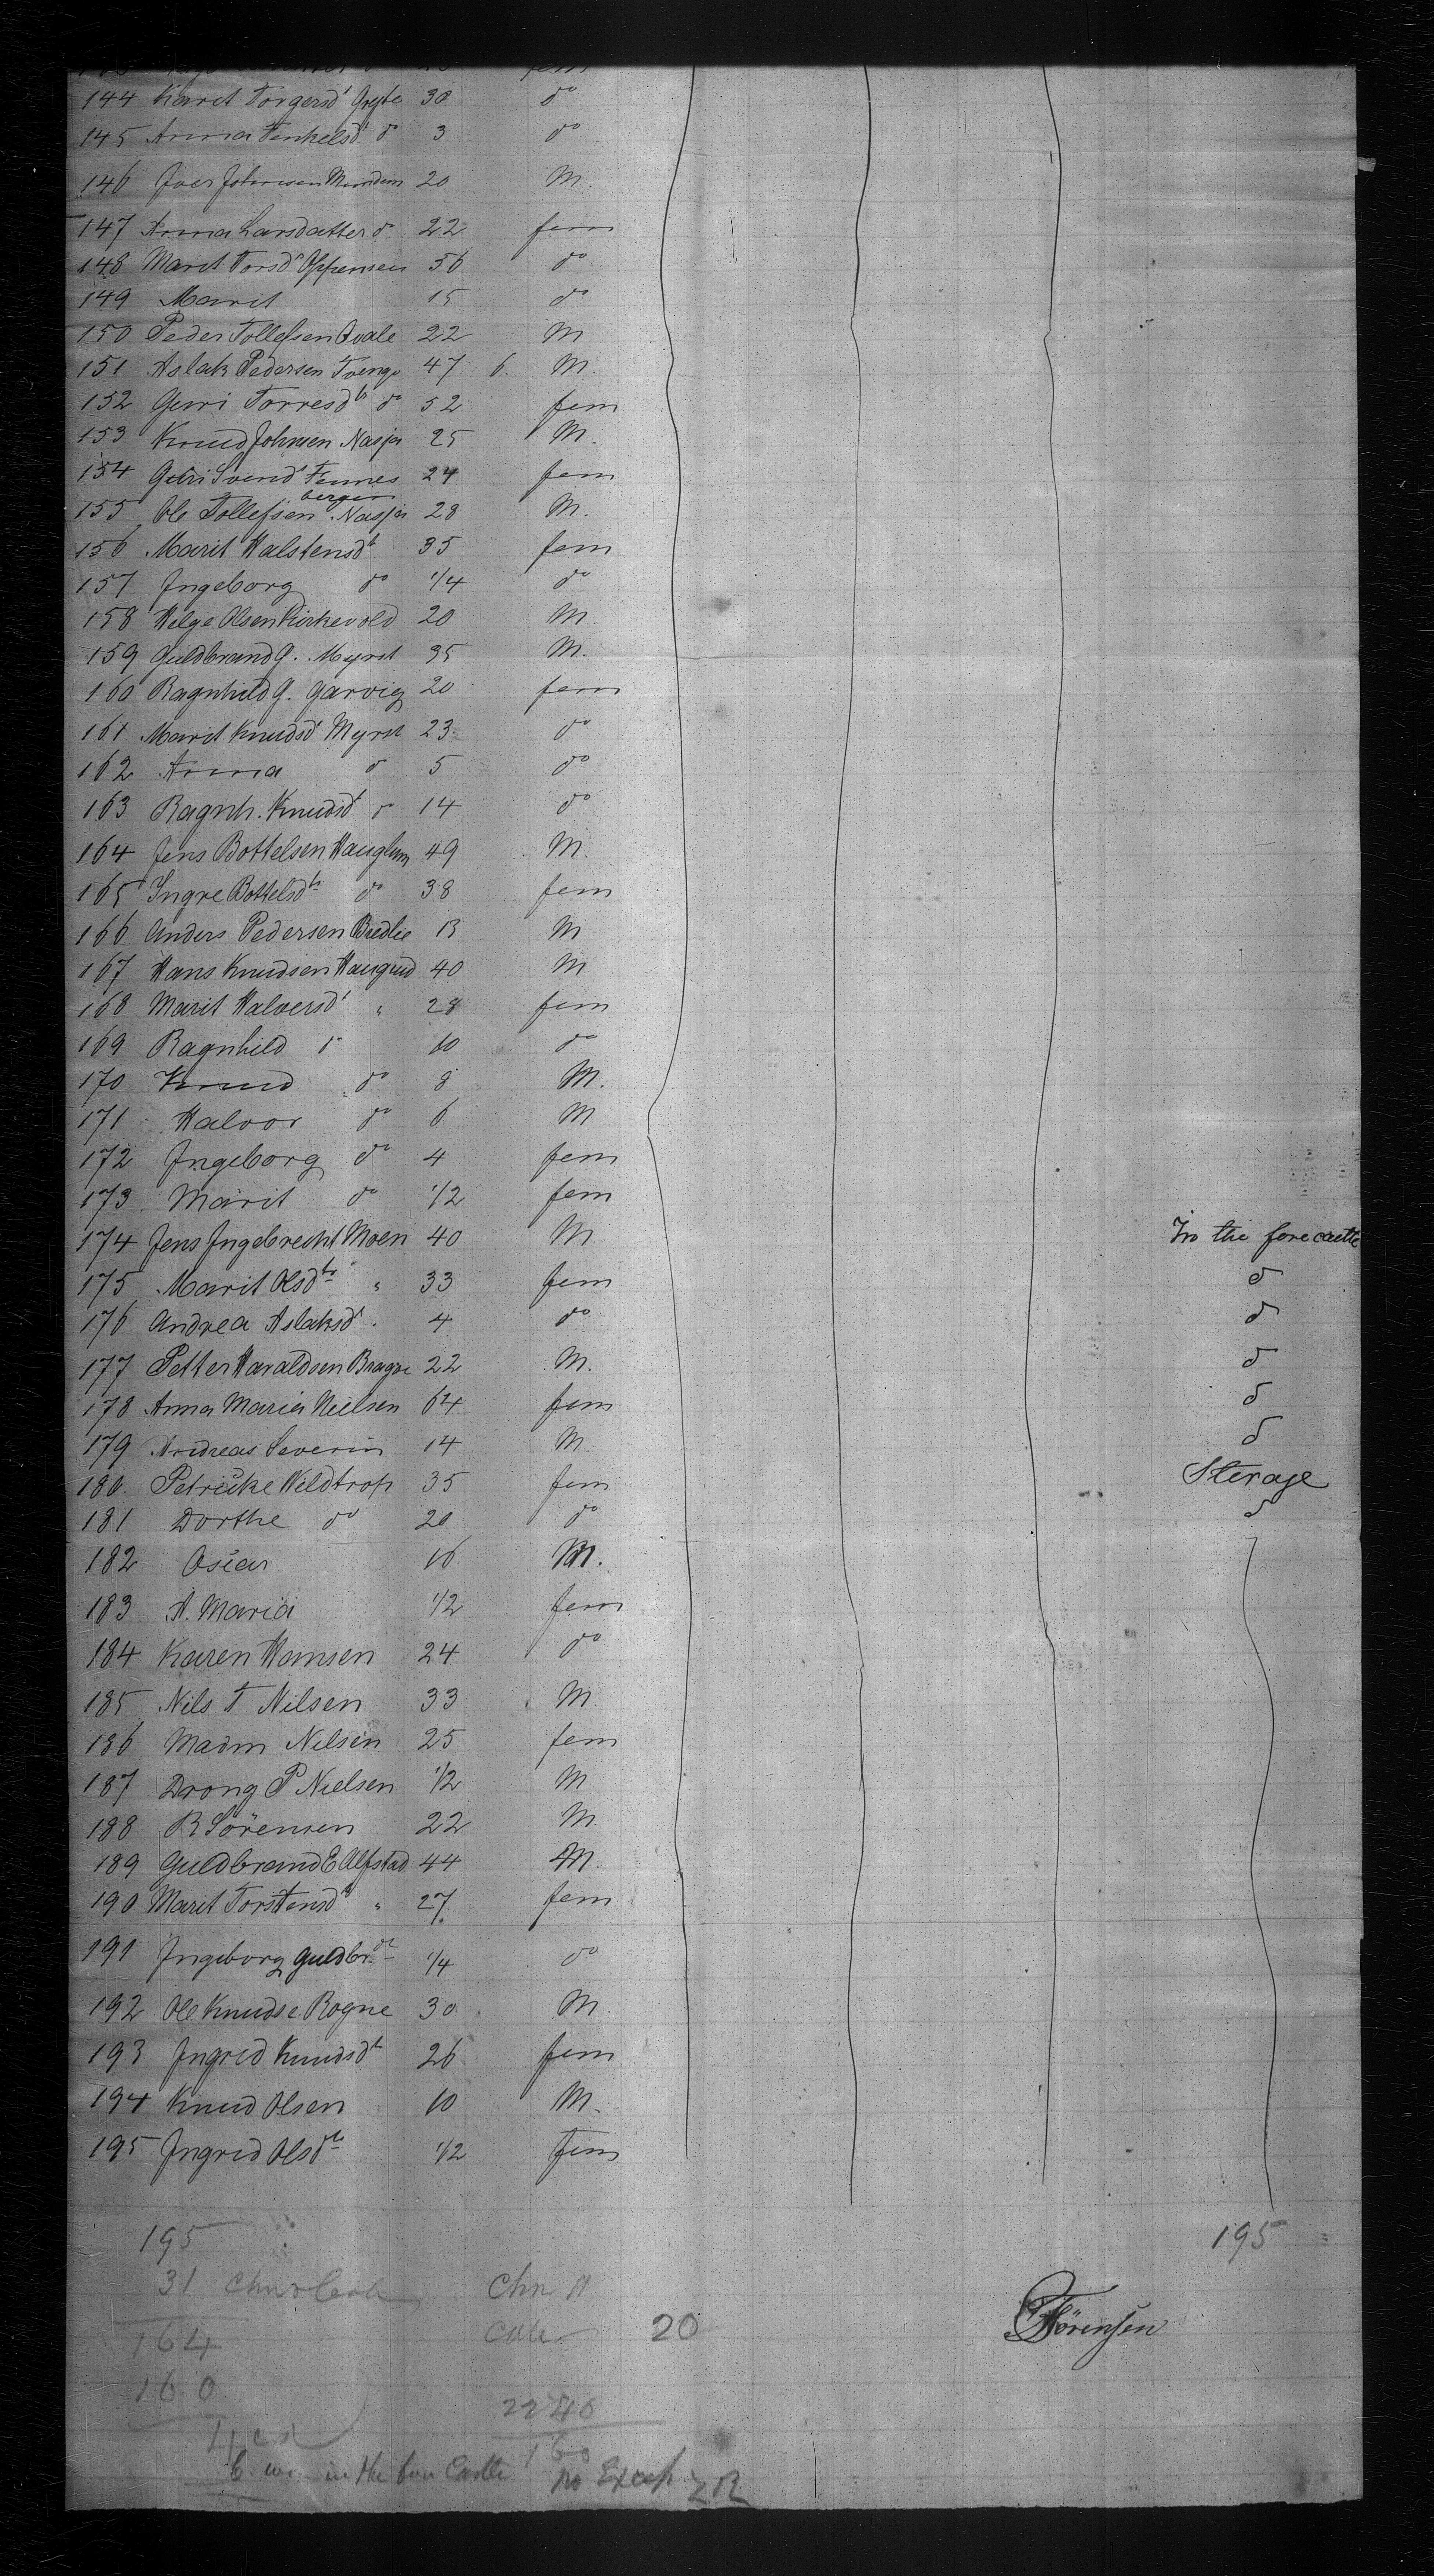 144 Karit Torgersdt Gryte 30 do
145 Anna Tenkelsd do 3 do
146 Iver Johnsen 20 M.
147 Anna Larsdatter do 22 fem
148 Marit Torsdr 56 do
149 Marit 15 do
150 Peder Tollefsen Qvale 22 M
151 Aslak Pedersen Tvenge 47 6. M.
152 Guri Torresdtr do 52 fem
153 Knud Johnsen Nasjer 25 M.
154 Guri Svendst Tennes 24 fem
bergen
155 Ole Tollefsen Nasjer 28 M.
156 Marit Halstensdt 35 fem
157 Ingeborg do 1/4 do
158 Helge Olsen Kirkevold 20 M.
159 Guldbrand G. Myrst 35 M.
160 Ragnhild G. Garvig 20 fem
161 Marit Knudsdt Myrst 23 do
162 Anna do 5 do
163 Ragnh. Knudsdt do 14 do
164 Jens Bottelsen Hauglum 49 M.
165 Ingre Bottelsdtr do 38 fem
166 Anders Pedersen Bredlie 13 M
167 Hans Knudsen Haugrud 40 M
168 Marit Halversdt " 28 fem
169 Ragnhild do 10 do
170 Knud do 8 M.
171 Halvor do 6 M
172 Ingeborg do 4 fem
173 Marit do 1/2 fem
174 Jens Ingebrecht Moen 40 M In the forecastle
175 Marit Olsdtr " 33 fem do
176 Andrea Aslaksdt 4 do do
177 Petter Haraldsen Bragne 22 M. do
178 Anna Maria Nielsen 64 fem do
179 Andreas Severin 14 M. do
180 Petricke Veldtrop 35 fem Sterage
181 Dorthe do 20 do do
182 Oscar 16 M.
183 A. Maria 1/2 fem
184 Karen Hansen 24 do
185 Nils T Nilsen 33 M.
186 Madm Nilsen 25 fem
187 Drong P Nielsen 1/2 M
188 R Sörensen 22 M.
189 Guldbrand E Alfstad 44 M.
190 Marit Torstensdt " 27 fem
191 Ingeborg Guldbr. dt 1/4 do
192 Ole Knudse Rogne 30 M.
193 Ingrid Knudsdt 26 fem
194 Knud Olsen 10 M.
195 Ingrid Olsdtr 1/2 fem
195 195
31
164 20 Sörensen
160
2240
160
6 in the fore Castle no Excess